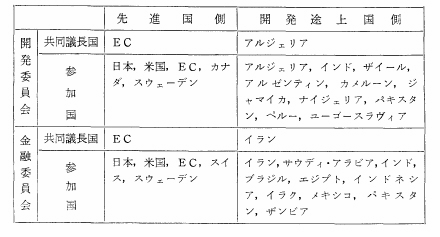 先進国側 開発途上国側
開発委員会
共同議長国 EC アルジェリア
参加国
日本, 米国, EC, カナ
ダ, スウェーデン
アルジェリア, インド, ザイール,
アルゼンティン, カメルーン, ジ
ャマイカ, ナイジェリア, パキスタ
ン, ペルー, ユーゴースラヴィア
金融委員会
共同議長国 EC イラン
参加国
日本, 米国, EC, スイ
ス, スウェーデン
イラン, サウディ・アラビア, インド,
ブラジル, エジプト, インドネシ
ア, イラク, メキシコ, パキスタ
ン, ザンビア